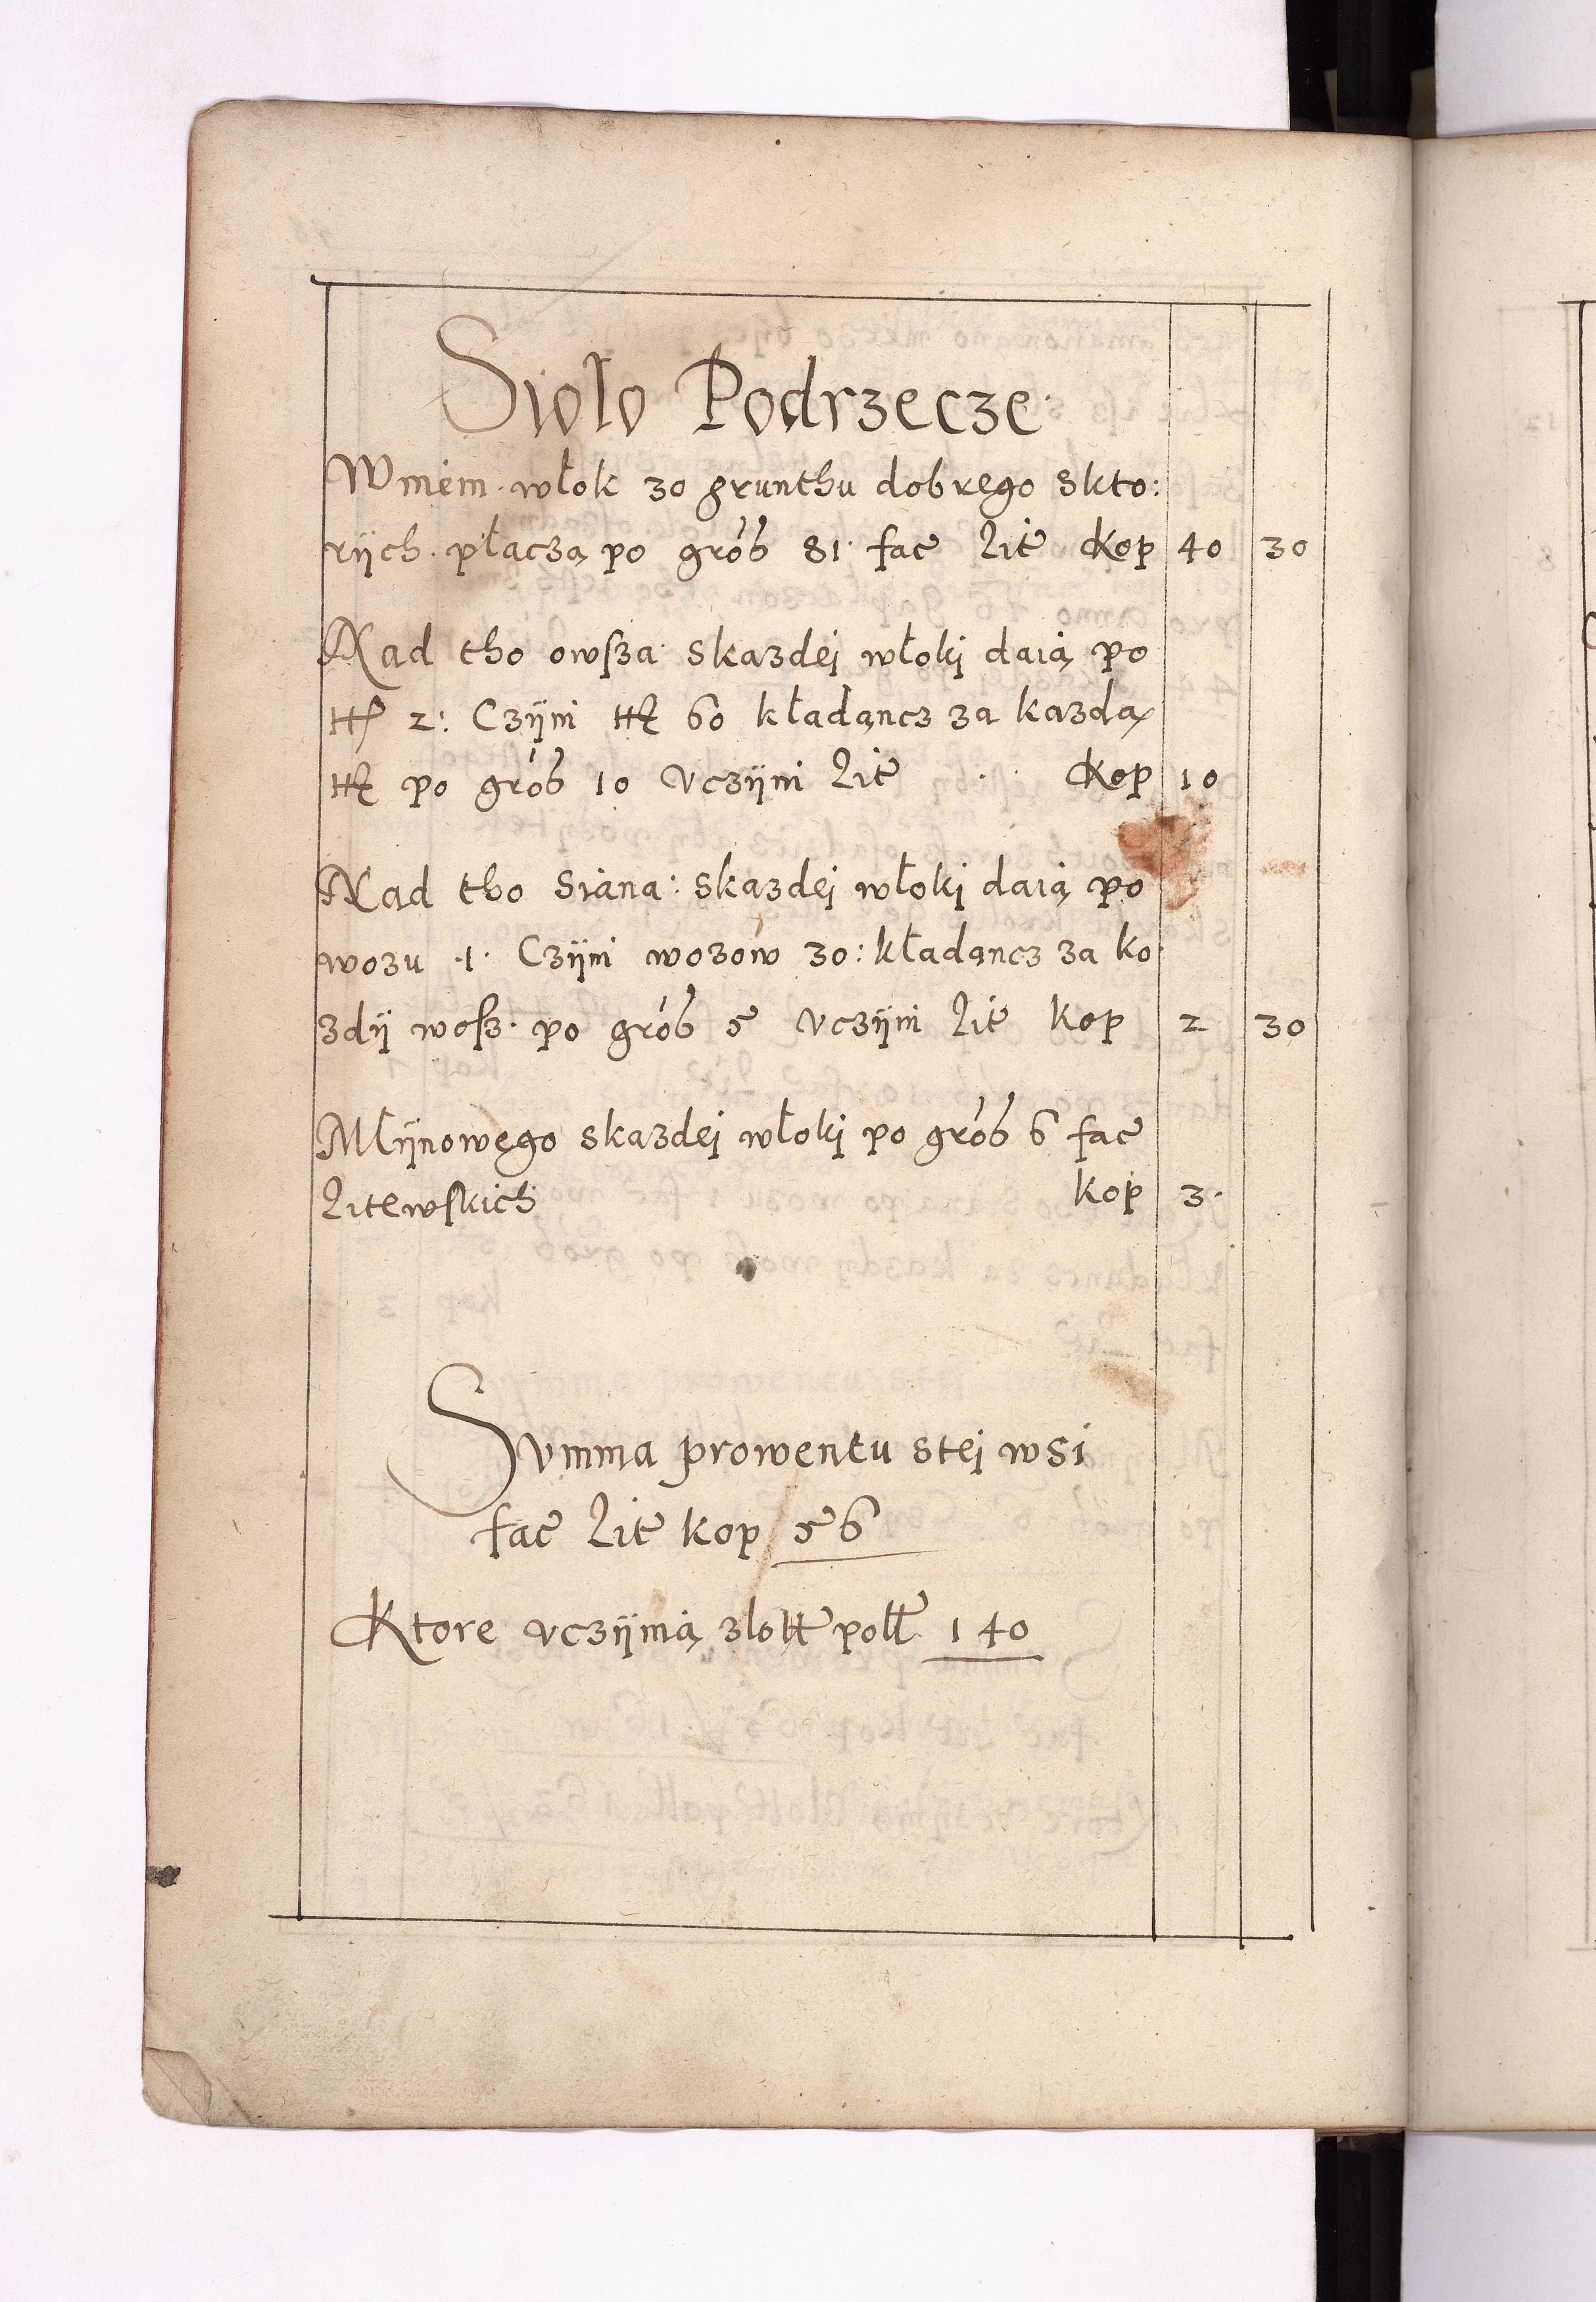 Sioło Podrzecze
Wniem włok 30 grunthu dobrego skto:
rÿch płaczą po grosʒ 81 fac Lit kop 40 30
Nad tho owſza skazdej włokj daią po
tt 2: Czÿni tt 60 kładąncz za kazdą
tt po grosʒ 10 vczÿni Lit kop 10
Nad tho Siana: skazdej włokj daią po
wozu 1 Czÿni wozow 30: kładąncz za ko
zdÿ woſz po grosʒ 5 vczÿni Lit kop 2 30
Młÿnowego skazdej włokj po grosʒ 6 fac
Litewſkich kop 3
Svmma prowentu stej wsi
fac Lit kop 56
Ktore vczÿnią złott poll 140